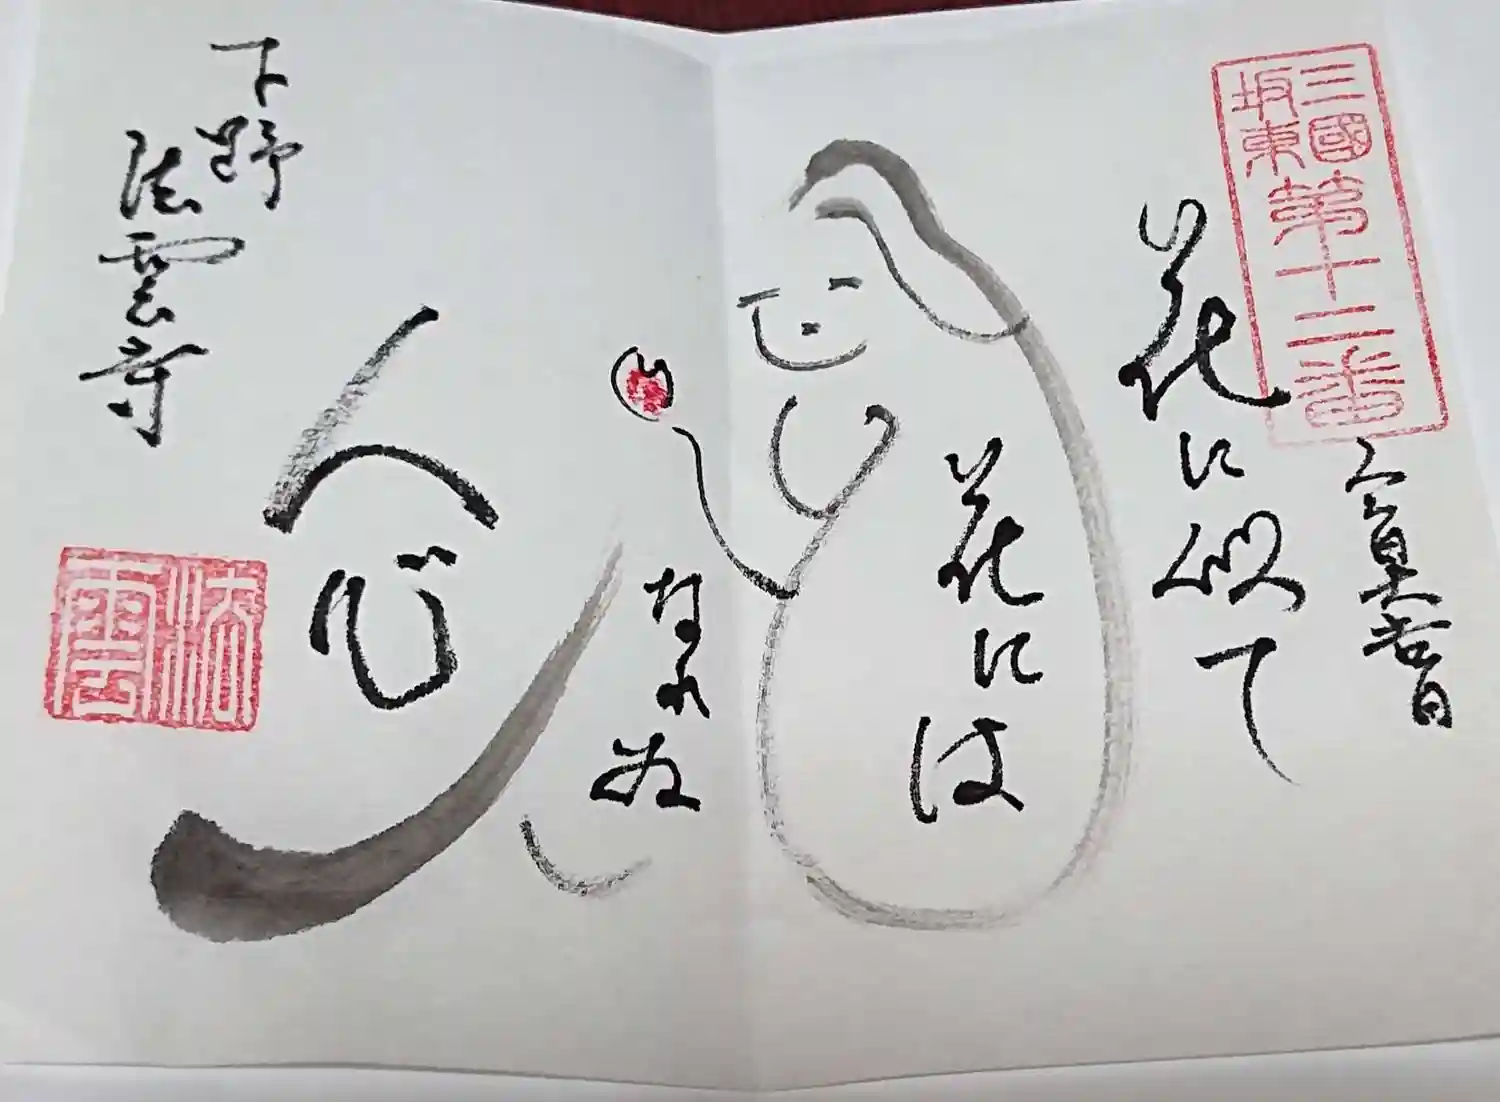 三國
坂東
第十二番
花に似て
花には
なれぬ
下野
法雲寺
法雲